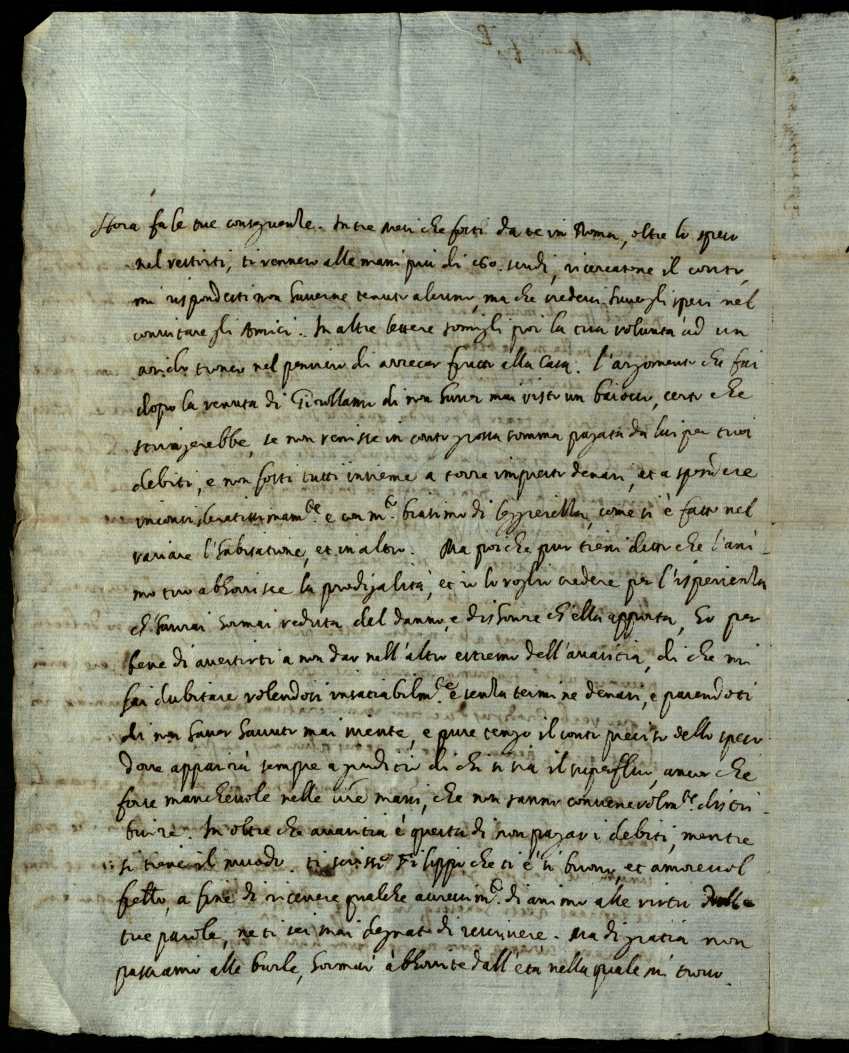 Hora fa le tue conseguenze. In tre mesi che fosti da te in Roma, oltre lo speso
nel vestirti, ti vennero alle mani più di 160 scudi, ricercatone il conto,
mi rispondesti non haverne tenuto alcuno, ma che credevi haverli spesi nel
convitare gli Amici. In altre lettere somigli poi la tua volunta ad un
arido tronco nel pensiero di arrecar frutto alla Casa. L'argomento che fai
dopo la venuta di Girollamo di non haver mai visto un baiocco, certo che
stringerebbe, se non venisse in conto grossa somma pagata da lui per tuoi
debiti, e non fosti tutti insieme a torre impresto denari, et a spendere
inconsideratissimam.te e con m.to biasimo di leggierezza, come si è fatto nel
variare l'habitatione, et in altro. Ma poiche pur tieni detto che l'ani-
mo tuo abhorrisce la prodigalità, et io lo voglio credere per l'isperienza
ch'havrai hormai veduta del danno, e dishonore ch'ella apporta, ho per
bene di avertirti a non dar nell'altro estremo dell'avaritia, di che mi
fai dubitare volendoti insatiabilm.te e senza termine denari, e parendoti
di non haver havuto mai niente, e pure tengo il conto preciso dello speso
dove apparirà sempre a giuditio di chi si sia il superfluo, ancor che
forse manchevole nelle mani, che non sanno convenevolm.te distri
buire. In oltre che avaritia è questa di non pagar i debiti, mentre
si tiene il muodo. ti scrisse Filippo che ti è sì buono, et amorevol
fratello, a fine di ricevere qualche accrescim.to di animo alle virtù dalle
tue parole, ne ti sei mai degnato di rescrivere. Ma di gratia non
passiamo alle burle, hormai abhorrite dall'età nella quale mi trovo.